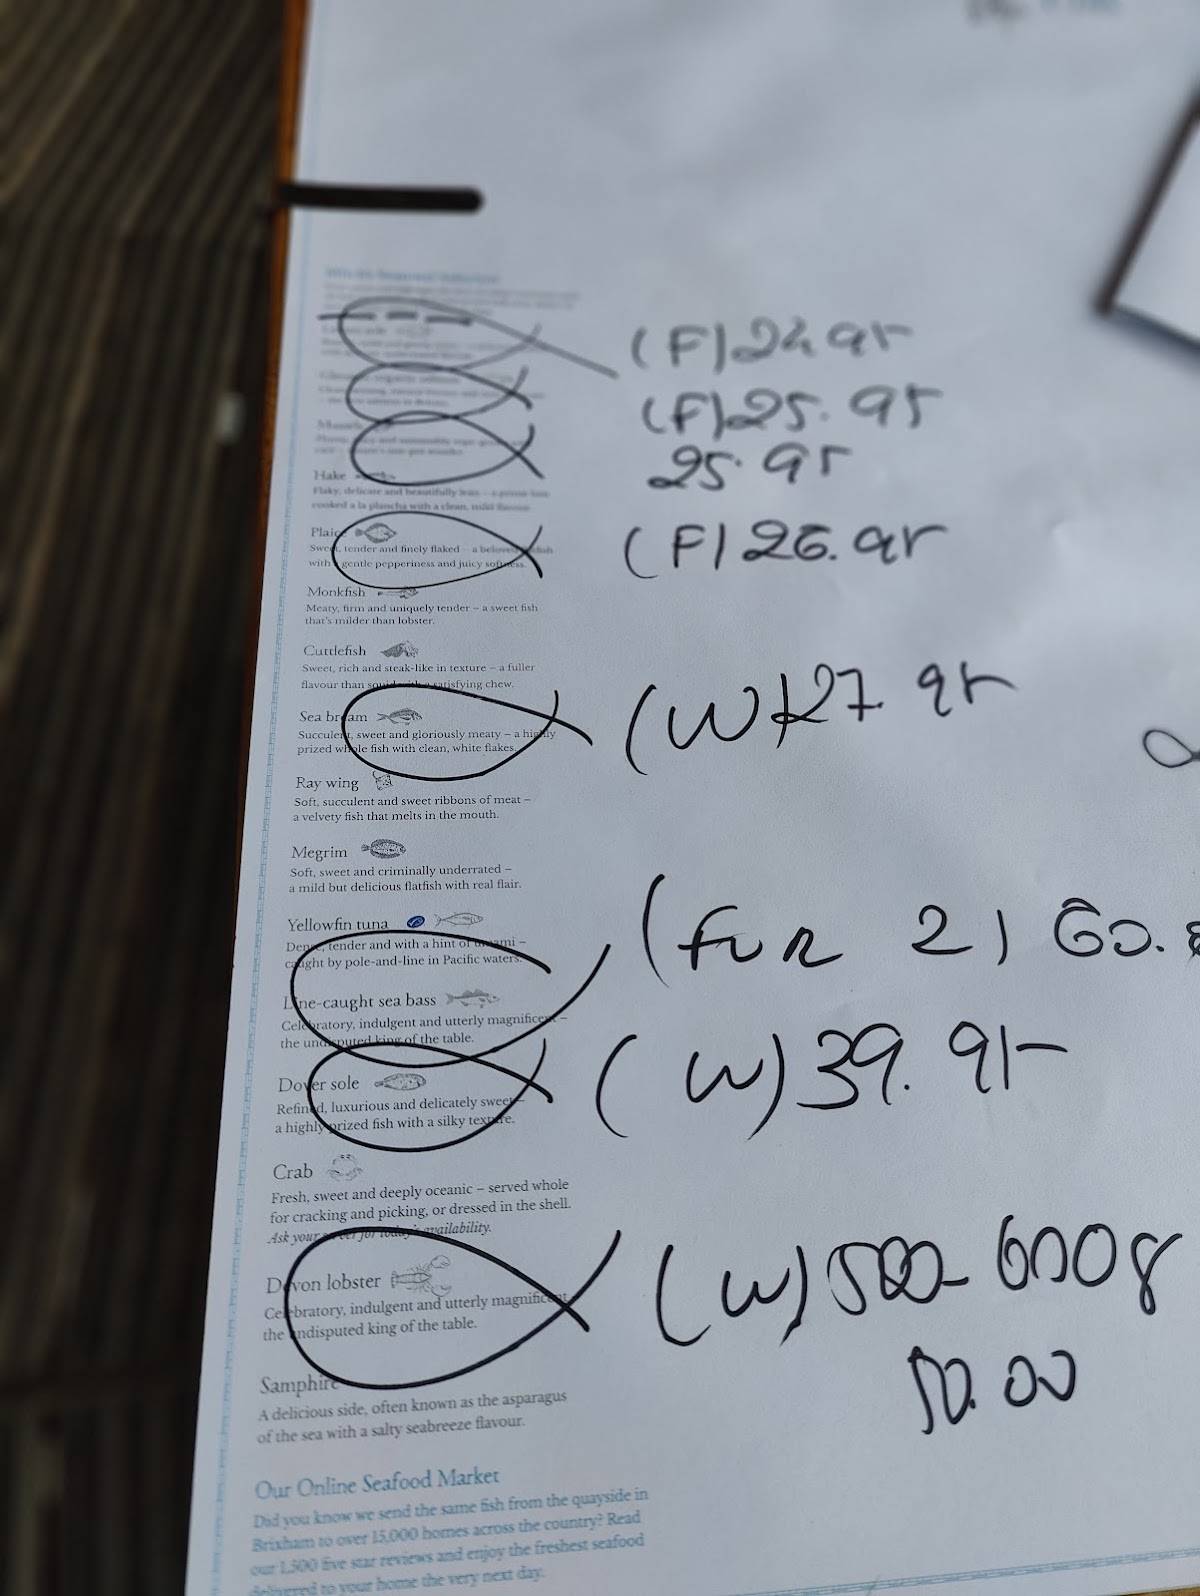 (F) 24.95
(F) 25.95
25.95
Hake
Flaky, delicate and beautifully
cooked a la plancha with a clean, mild flavour
(F) 26.95
Plaice
Sweet, tender and finely flaked – a beloved
with gentle pepperiness and juicy softness.
Monkfish
Meaty, firm and uniquely tender – a sweet fish
that's milder than lobster.
Cuttlefish
Sweet, rich and steak-like in texture – a fuller
flavour than squid with a satisfying chew.
Sea bream
(W) 27.95
Succulent, sweet and gloriously meaty – a highly
prized whole fish with clean, white flakes.
Ray wing
Soft, succulent and sweet ribbons of meat –
a velvety fish that melts in the mouth.
Megrim
Soft, sweet and criminally underrated –
a mild but delicious flatfish with real flair.
Yellowfin tuna
(for 2) 60.
Dense, tender and with a hint of umami –
caught by pole-and-line in Pacific waters.
Line-caught sea bass
Celebratory, indulgent and utterly magnificent –
the undisputed king of the table.
Dover sole
(W) 39.95
Refined, luxurious and delicately sweet –
a highly prized fish with a silky texture.
Crab
Fresh, sweet and deeply oceanic – served whole
for cracking and picking, or dressed in the shell.
Ask your server for today's availability.
Devon lobster
(W) 500-600g
Celebratory, indulgent and utterly magnificent,
the undisputed king of the table.
50.00
Samphire
A delicious side, often known as the asparagus
of the sea with a salty seabreeze flavour.
Our Online Seafood Market
Did you know we send the same fish from the quayside in
Brixham to over 15,000 homes across the country? Read
our 1,500 five star reviews and enjoy the freshest seafood
delivered to your home the very next day.